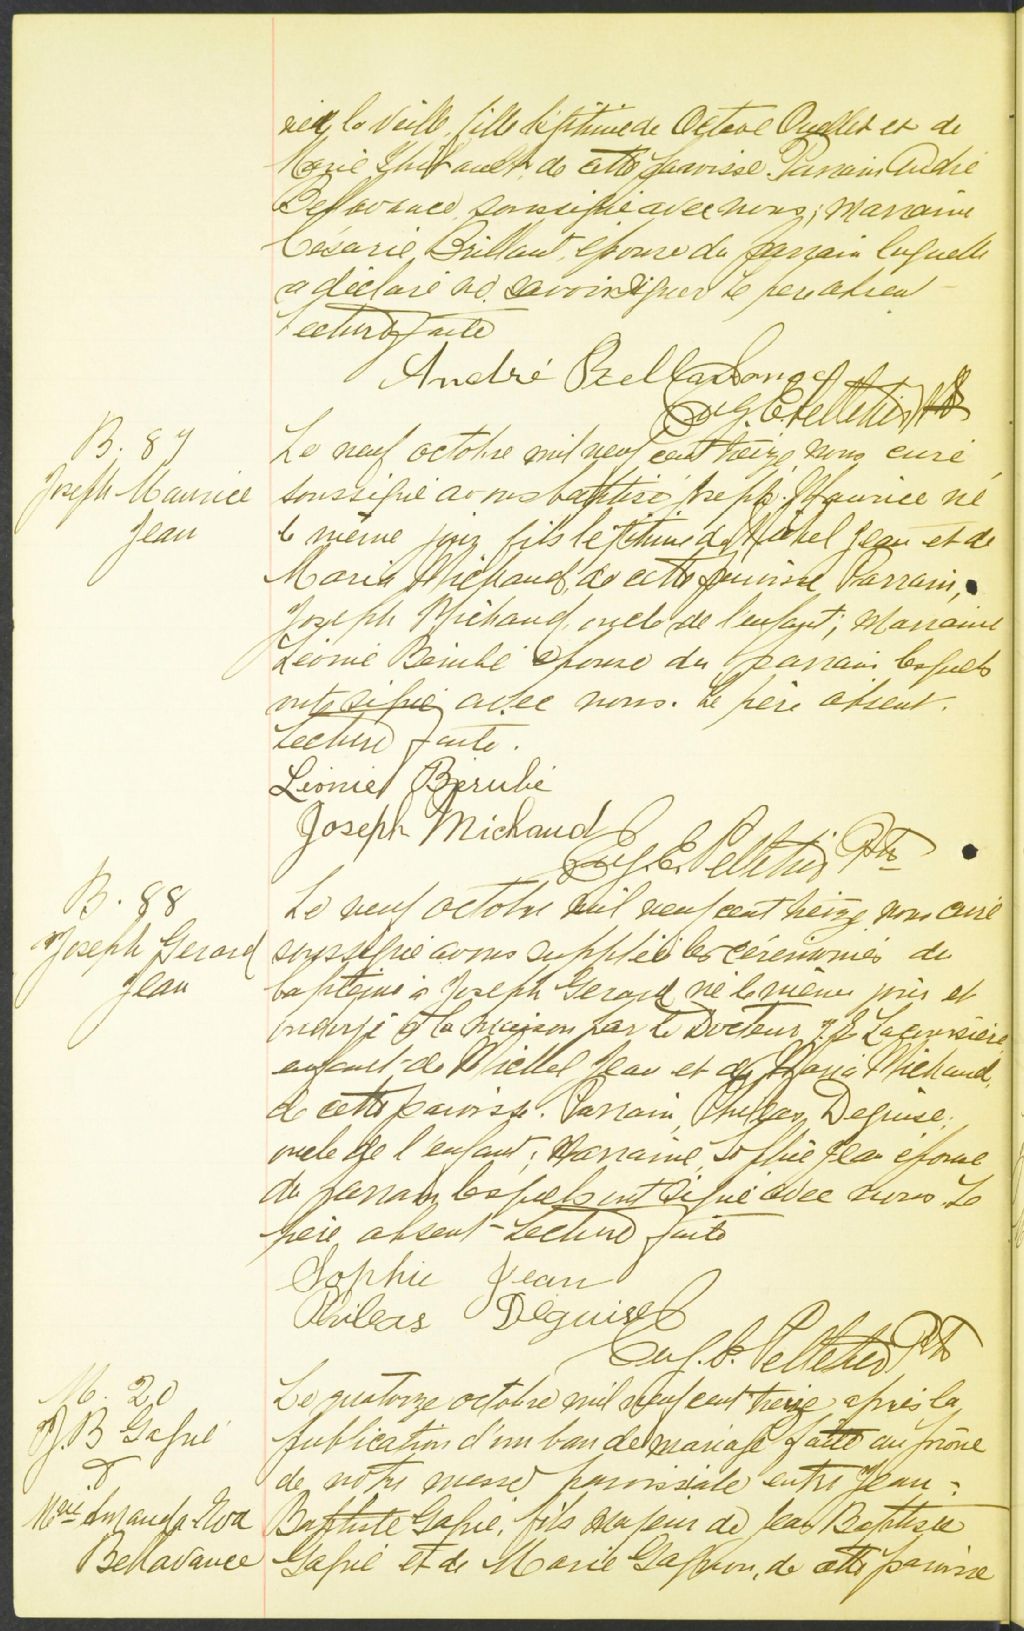 née la veille, fille légitime de Octave Ouellet et de
Marie Thibault, de cette paroisse. Parrain André
Bellavance, soussigné avec nous; Marraine
Césarie Brillant, épouse du parrain laquelle
a déclaré ne savoir signer. Le père absent -
Lecture faite
André Bellavance
Eug. E. Pelletier Ptr
B. 87
Joseph Maurice
Jean
Le neuf octobre mil neuf cent treize nous curé
soussigné avons baptisé Joseph Maurice né
le même jour fils légitime de Michel Jean et de
Maria Michaud, de cette paroisse Parrain,
Joseph Michaud, oncle de l'enfant; Marraine
Léonie Bérubé épouse du parrain lesquels
ont signé avec nous. Le père absent.
Lecture faite.
Léonie Bérubé
Joseph Michaud
Eug. E. Pelletier Ptr
B. 88
Joseph Gerard
Jean
Le neuf octobre mil neuf cent treize nous curé
soussigné avons suppléé les cérémonies du
baptême à Joseph Gerard né le même jour et
ondoyé à la maison par le Docteur Lacoursière
enfant de Michel Jean et de Maria Michaud,
de cette paroisse. Parrain, Phileas Deguise,
oncle de l'enfant; Marraine, Sophie Jean épouse
du parrain lesquels ont signé avec nous. Le
père absent - Lecture faite
Sophie Jean
Phileas Deguise
Eug. E. Pelletier Ptr
M. 20
J. B Gagné
&
Melle Amanda-Eva
Bellavance
Le quatorze octobre mil neuf cent treize après la
publication d'un ban de mariage faite au prône
de notre messe paroissiale entre Jean-
Baptiste Gagné, fils majeur de Jean Baptiste
Gagné et de Marie Gagnon, de cette paroisse